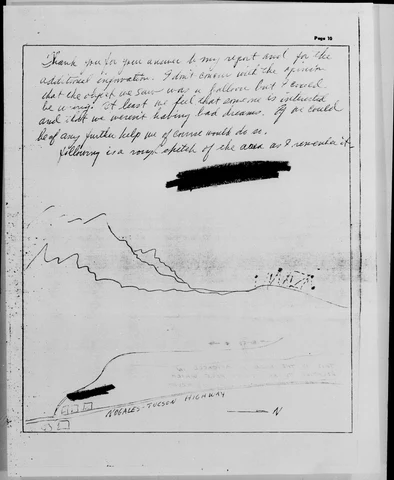 Page 10
Thank you for your answer to my report and for the
additional information. I don't concur with the opinion
that the object we saw was a balloon but I could
be wrong. At least we feel that someone is interested
and that we weren't having bad dreams. If we could
be of any further help we of course would do so.
Following is a rough sketch of the area as I remember it-
NOGALES-TUCSON HIGHWAY
N